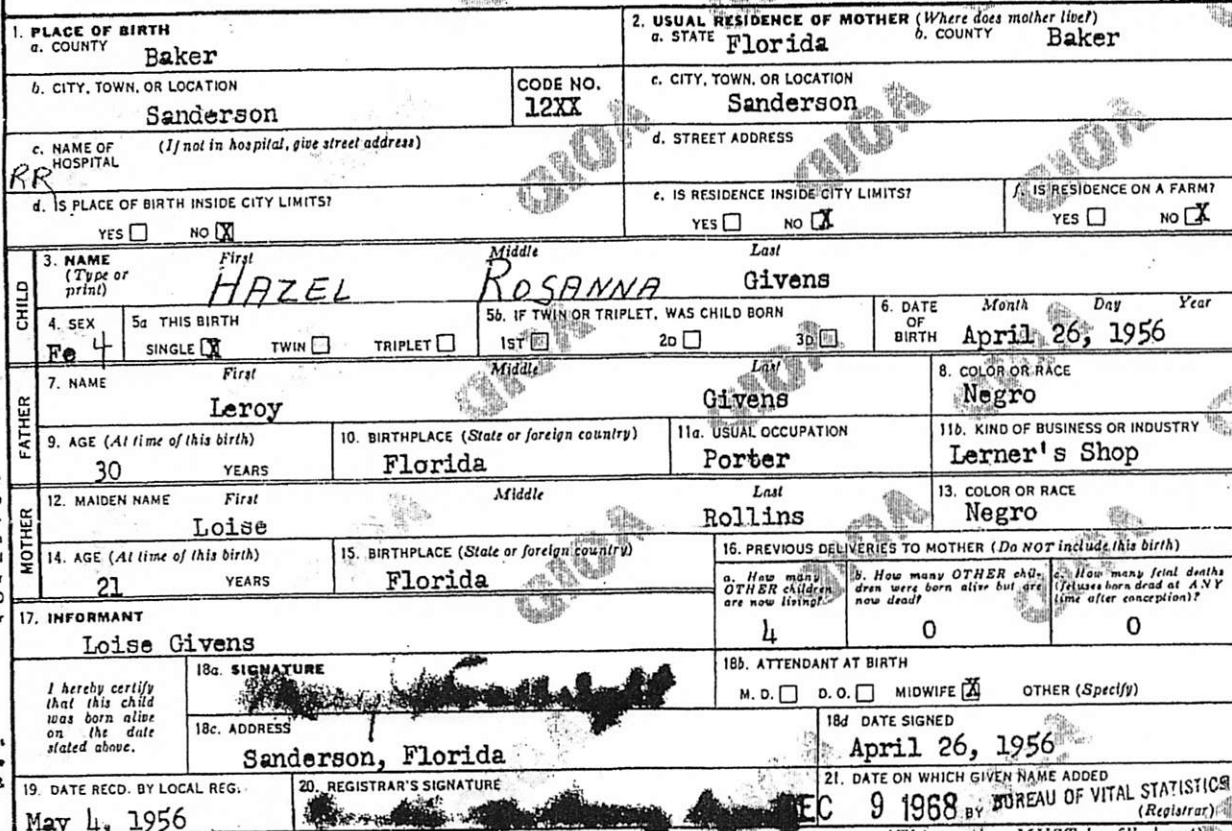 1. PLACE OF BIRTH
a. COUNTY
Baker
2. USUAL RESIDENCE OF MOTHER (Where does mother live?)
a. STATE Florida b. COUNTY Baker
b. CITY, TOWN, OR LOCATION
Sanderson
CODE NO.
12XX
c. CITY, TOWN, OR LOCATION
Sanderson
c. NAME OF HOSPITAL (If not in hospital, give street address)
RR
d. STREET ADDRESS
d. IS PLACE OF BIRTH INSIDE CITY LIMITS?
YES NO X
e. IS RESIDENCE INSIDE CITY LIMITS?
YES NO X
f. IS RESIDENCE ON A FARM?
YES NO X
CHILD
3. NAME (Type or print)
First Middle Last
HAZEL ROSANNA Givens
4. SEX
Fe 4
5a THIS BIRTH
SINGLE X TWIN TRIPLET
5b. IF TWIN OR TRIPLET, WAS CHILD BORN
1ST 2D 3D
6. DATE OF BIRTH Month Day Year
April 26, 1956
FATHER
7. NAME First Middle Last
Leroy Givens
8. COLOR OR RACE
Negro
9. AGE (At time of this birth)
30 YEARS
10. BIRTHPLACE (State or foreign country)
Florida
11a. USUAL OCCUPATION
Porter
11b. KIND OF BUSINESS OR INDUSTRY
Lerner's Shop
MOTHER
12. MAIDEN NAME First Middle Last
Loise Rollins
13. COLOR OR RACE
Negro
14. AGE (At time of this birth)
21 YEARS
15. BIRTHPLACE (State or foreign country)
Florida
16. PREVIOUS DELIVERIES TO MOTHER (Do NOT include this birth)
a. How many OTHER children are now living?
4
b. How many OTHER children were born alive but are now dead?
0
c. How many fetal deaths (fetuses born dead at ANY time after conception)?
0
17. INFORMANT
Loise Givens
I hereby certify
that this child
was born alive
on the date
stated above.
18a. SIGNATURE
18b. ATTENDANT AT BIRTH
M. D. D. O. MIDWIFE X OTHER (Specify)
18c. ADDRESS
Sanderson, Florida
18d DATE SIGNED
April 26, 1956
19. DATE RECD. BY LOCAL REG.
May 4, 1956
20. REGISTRAR'S SIGNATURE
21. DATE ON WHICH GIVEN NAME ADDED
DEC 9 1968 BY BUREAU OF VITAL STATISTICS
(Registrar)